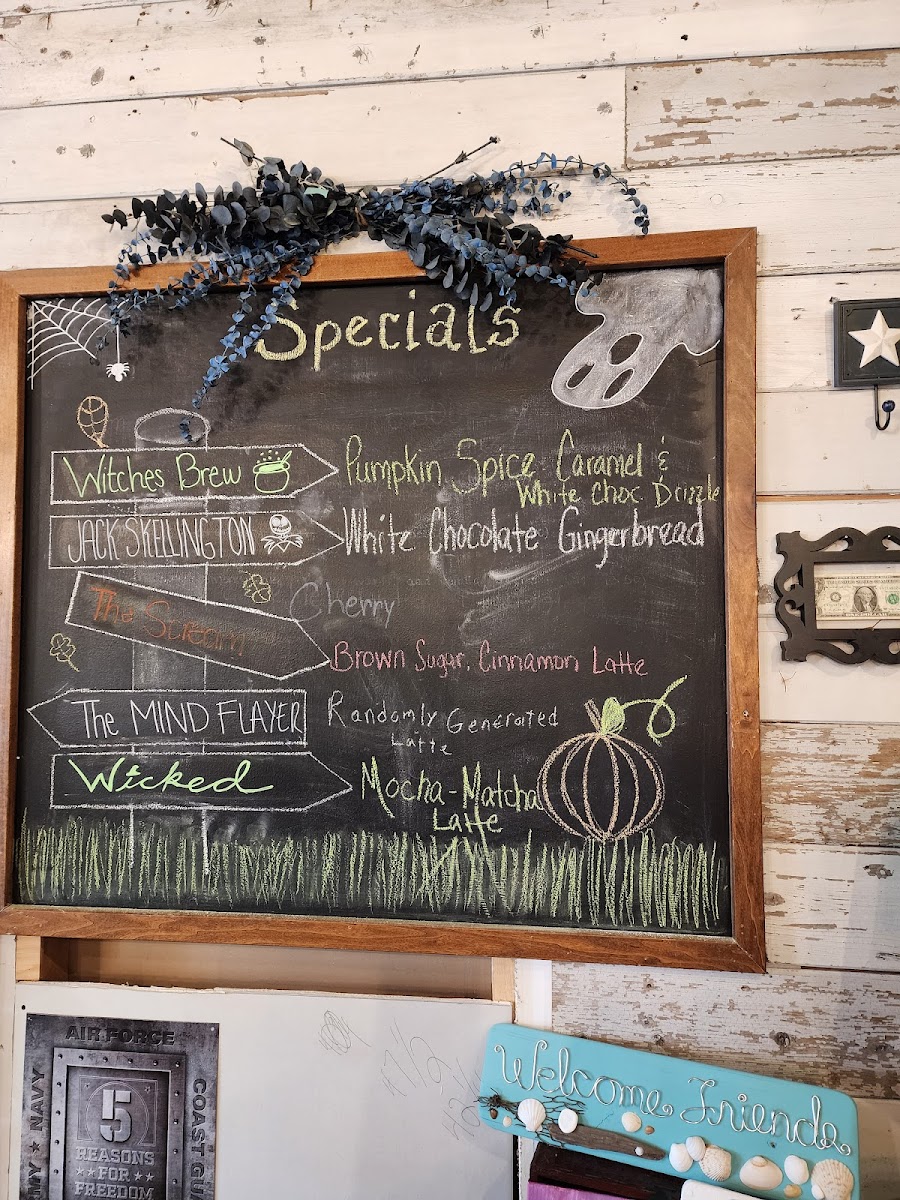 Specials
Witches Brew
Pumpkin Spice Caramel &
White Choc Drizzle
JACK SKELLINGTON
White Chocolate Gingerbread
The Scream
Cherry
Brown Sugar, Cinnamon Latte
The MIND FLAYER
Randomly Generated
Latte
Wicked
Mocha-Matcha
Latte
AIR FORCE
NAVY
COAST GUA
MY
5
REASONS
FOR
FREEDOM
Welcome Friends